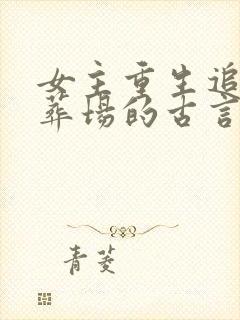 女主重生追
葬场的古言
青菱